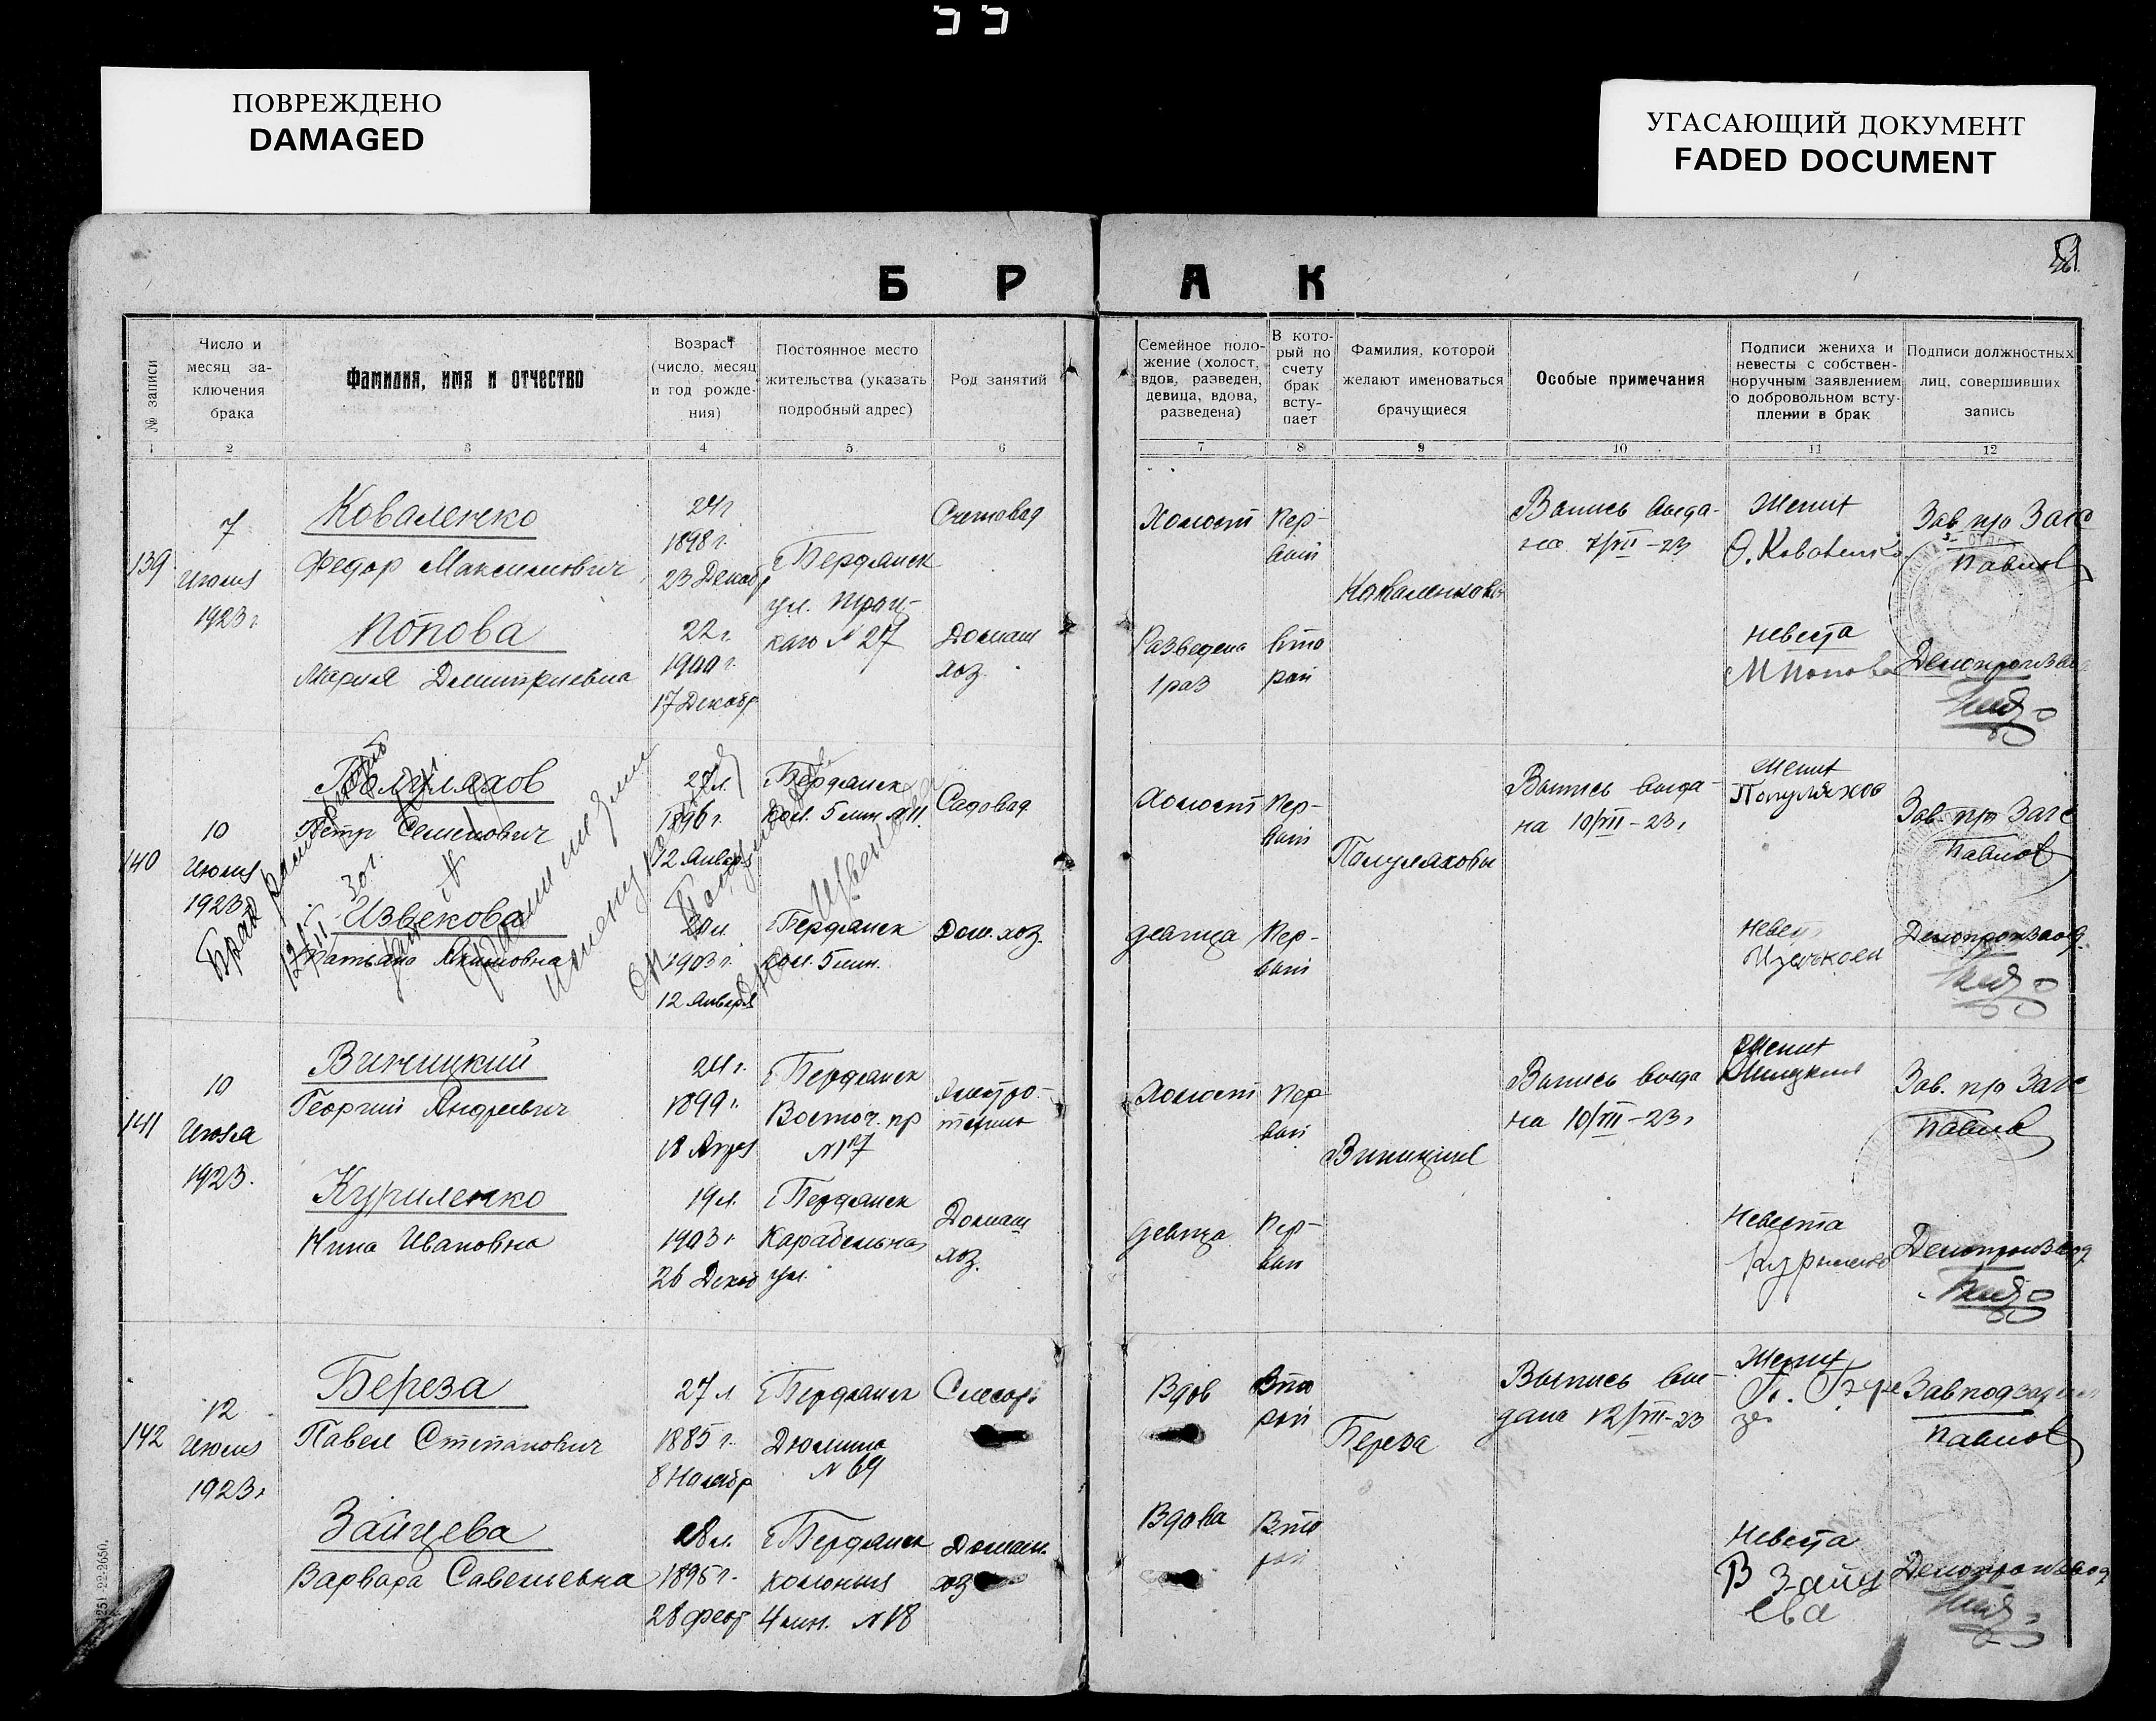 ПОВРЕЖДЕНО
DAMAGED
УГАСАЮЩИЙ ДОКУМЕНТ
FADED DOCUMENT
Б Р А К
№ записи
Число и месяц заключения брака
Фамилия, имя и отчество
Возраст (число, месяц и год рождения)
Постоянное место жительства (указать подробный адрес)
Род занятий
Семейное положение (холост, вдов, разведен, девица, вдова, разведена)
В который по счету брак вступает
Фамилия, которой желают именоваться брачущиеся
Особые примечания
Подписи жениха и невесты с собственноручным заявлением о добровольном вступлении в брак
Подписи должностных лиц, совершивших запись
1 2 3 4 5 6 7 8 9 10 11 12
139
7
Июля
1923 г.
Коваленко
Федор Максимович
24 г
1898 г.
23 Декабр
г Бердянск
ул. Троц-
каго № 27
Счетовод
Холост
Пер-
вый
Коваленковы
Выпись выда-
на 7/VII-23
Жених
Зав п/о Загс
Павлов
Попова
Мария Дмитриевна
22 г.
1900 г.
17 Декабр
Домаш
хоз.
Разведена
1 раз
Вто
рой
Невеста
М Попова
Делопроизвод
140
10
Июля
1923
Полуляхов
Петр Семенович
27 л.
1896 г.
12 Января
г Бердянск
кол. 5 лин № 11.
Садовод
Холост
Пер-
вый
Полуляховы
Выпись выда-
на 10/VII-23 г
Жених
Полуляхов
Зав п/о Загс
Павлов
Брак
Извекова
Татьяна Якимовна
20 л.
1903 г.
12 Января
г Бердянск
кол. 5 лин.
Дом. хоз.
девица
Пер-
вый
Делопроизвод.
141
10
Июля
1923.
Виницкий
Георгий Андреевич
24 г.
1899 г.
18 Апрел
г Бердянск
Восточ. пр
№ 17
Холост
Пер
вый
Выпись выда
на 10/VII-23 г
Жених
Зав. п/о Загс
Павлов
Куриленко
Нина Ивановна
19 л.
1903 г.
26 Декаб
г Бердянск
Карабельная
ул.
Домаш
хоз.
девица
Пер-
вый
Невеста
Делопроизвод
142
12
Июля
1923 г
Береза
Павел Степанович
27 л
1885 г.
8 Ноябр
г Бердянск
Дюмина
№ 69
Слесарь
Вдов
Вто
рой
Береза
Выпись вы-
дана 12/VII-23
Жених
Павлов
Зайцева
Варвара Савельевна
28 л.
1895 г.
28 февр
г Бердянск
колония
4 лин. № 18
Домаш.
хоз
Вдова
Вто
рой
Невеста
В Зайц
ева
Делопроизвод